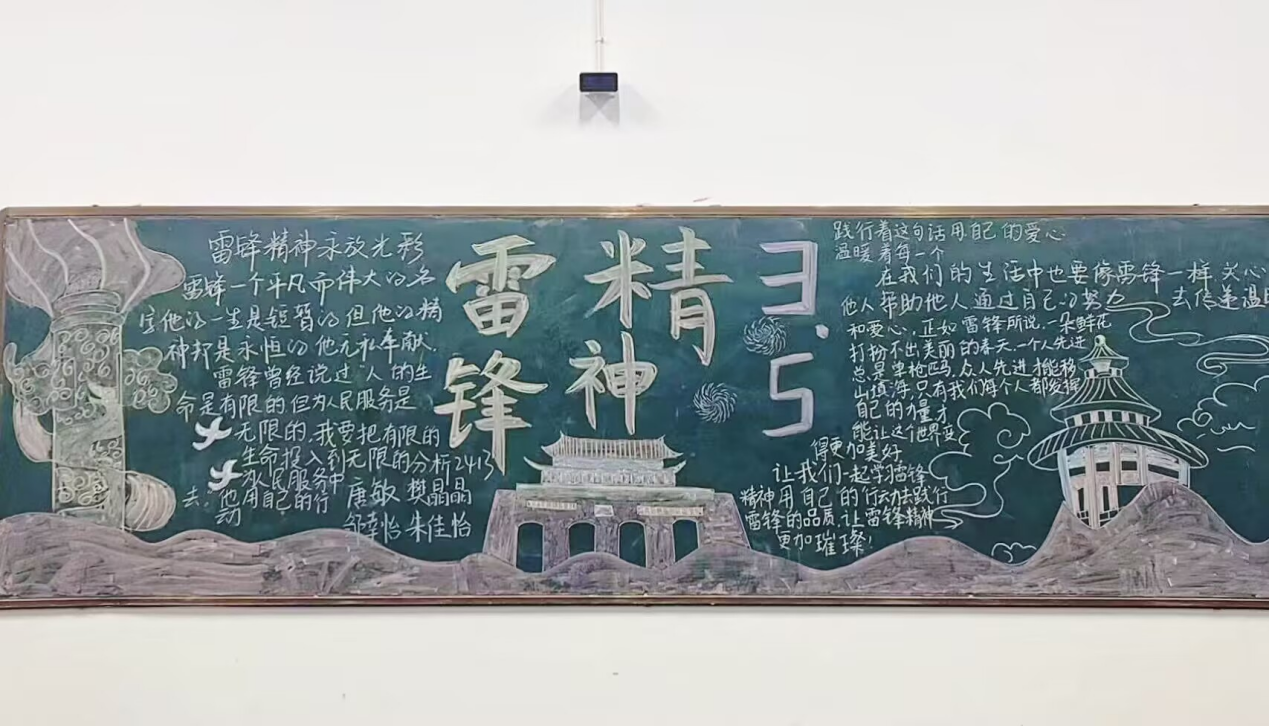 雷锋精神永放光彩
雷锋一个平凡而伟大的名
字他的一生是短暂的但他的精
神却是永恒的他无私奉献.
雷锋曾经说过"人的生
命是有限的但为人民服务是
无限的.我要把有限的
生命投入到无限的
为人民服务中
去".他用自己的行
动
分析2413
唐敏 樊晶晶
邹幸怡 朱佳怡
雷锋
精神
3.5
践行着这句话用自己的爱心
温暖着每一个
在我们的生活中也要像雷锋一样关心
他人帮助他人通过自己的努力 去传递温暖
和爱心,正如雷锋所说.一朵鲜花
打扮不出美丽的春天.一个人先进
总是单枪匹马,众人先进才能移
山填海.只有我们每个人都发挥
自己的力量才
能让这个世界变
得更加美好
让我们一起学习雷锋
精神用自己的行动去践行
雷锋的品质.让雷锋精神
更加璀璨!